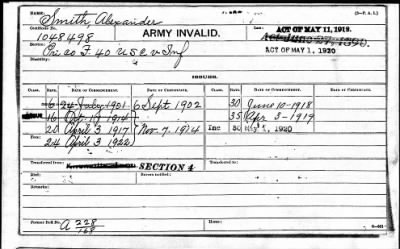 (3-P. A. I.)
NAME: Smith, Alexander
CERTIFICATE: 1048498
ARMY INVALID.
ACT OF MAY 11, 1912.
Act June 27, 1890.
ACT OF MAY 1, 1920
SERVICE: Pri co F. 40 U S C v Inf
DISABILITY:
ISSUES.
CLASS. RATE. DATE OF COMMENCEMENT. DATE OF CERTIFICATE. CLASS. RATE. DATE OF COMMENCEMENT. DATE OF CERTIFICATE.
6 24 July 1901 6 Sept 1902 30 June 10-1918
16 Oct 19 1914 35 Apr 3-1919
20 April 3 1917 Nov. 7, 1914 Inc 50 MAY 1, 1920
24 April 3 1922
Transferred from SECTION 4
Bureau notified:
Remarks:
Former Roll No. A 228/168
Home: